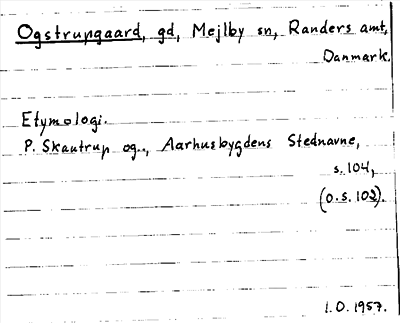 Ogstrupgaard, gd, Mejlby sn, Randers amt,
Danmark.
Etymologi.
P. Skautrup og., Aarhusbygdens Stednavne,
s. 104,
(o.s. 102).
1.O.1957.